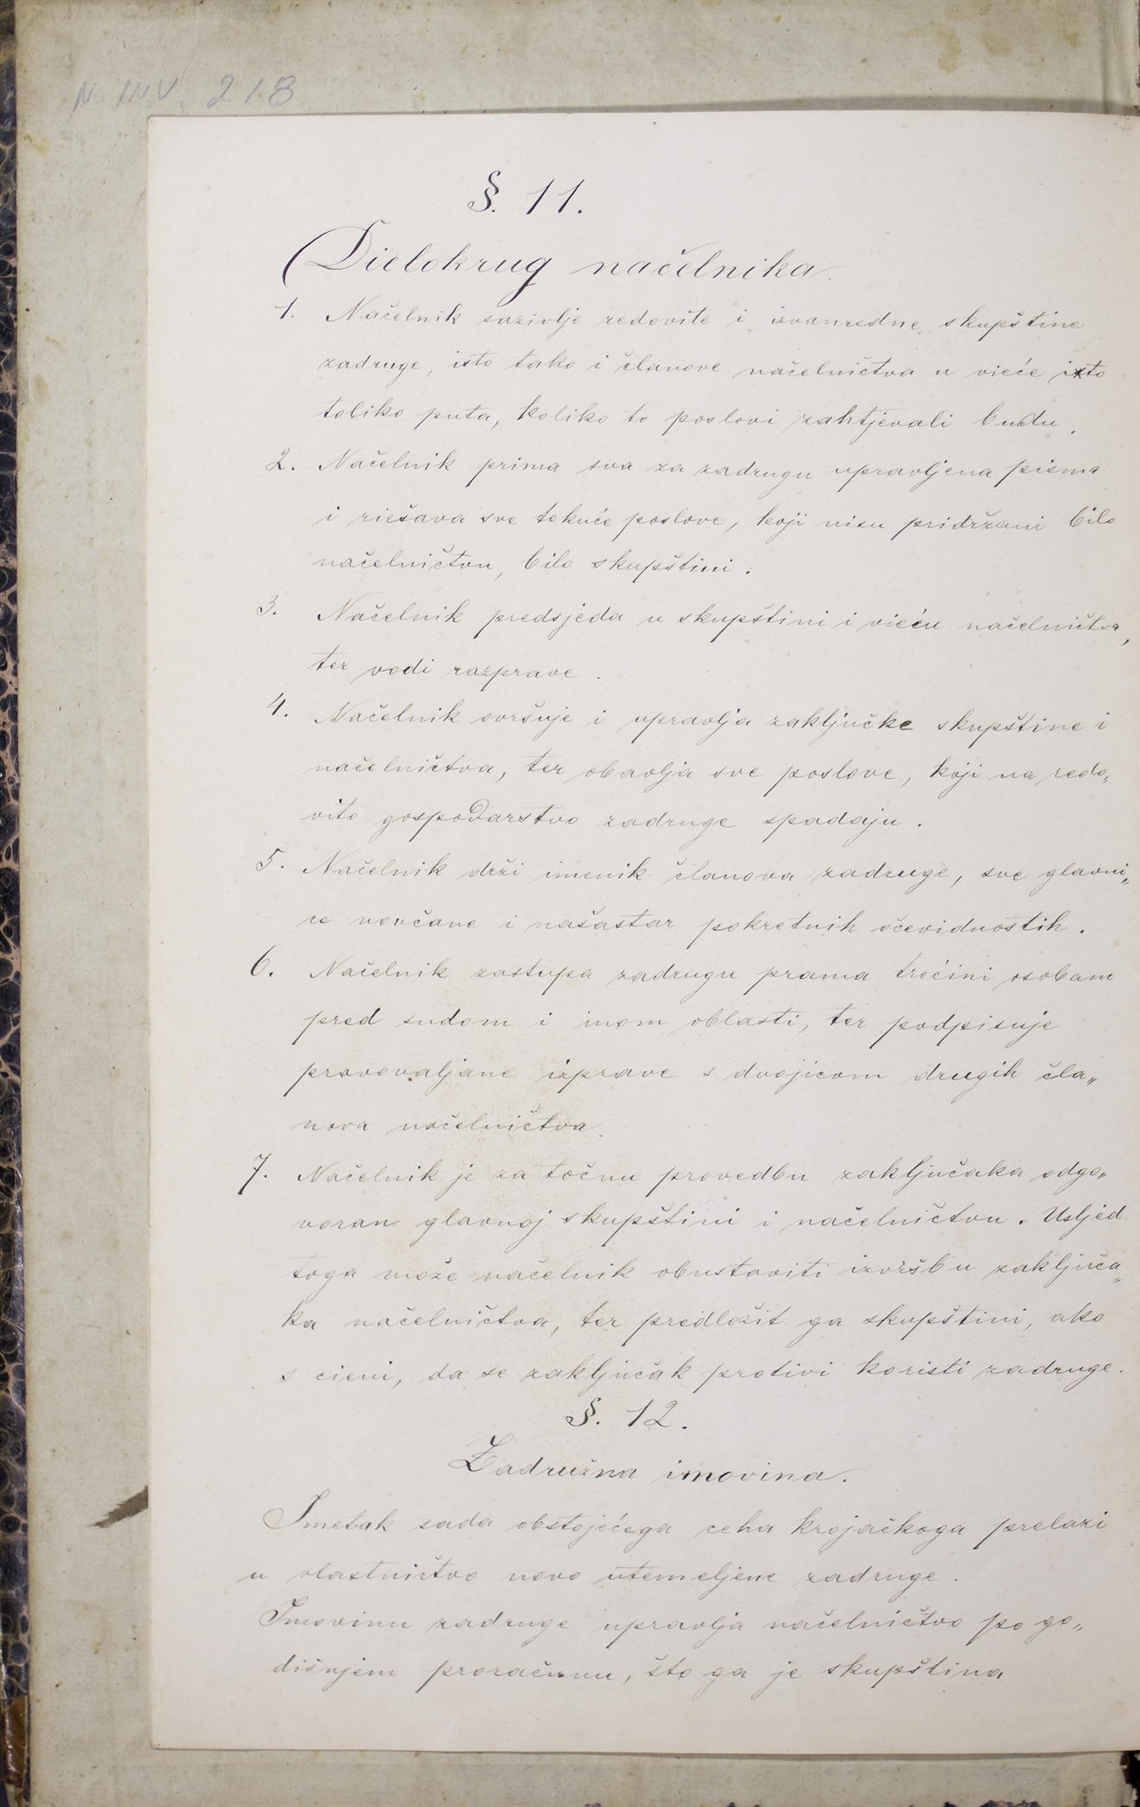 N. INV. 218
§. 11.
Dielokrug načelnika.
1. Načelnik sazivlje redovite i izvanredne skupštine
zadruge, isto tako i članove načelničtva u vieće isto
toliko puta, koliko to poslovi zahtjevali budu.
2. Načelnik prima sva za zadrugu upravljena pisma
i riešava sve tekuće poslove, koji nisu pridržani bilo
načelničtvu, bilo skupštini.
3. Načelnik predsjeda u skupštini i vieću načelničtva,
ter vodi razprave.
4. Načelnik ovršuje i upravlja zaključke skupštine i
načelničtva, ter obavlja sve poslove, koji na redo„
vito gospodarstvo zadruge spadaju.
5. Načelnik drži imenik članova zadruge, sve glavni„
ce novčane i našastar pokretnih očevidnostih.
6. Načelnik zastupa zadrugu prama trećini osobam
pred sudom i inom oblasti, ter podpisuje
pravovaljane izprave s dvojicom drugih čla„
nova načelničtva.
7. Načelnik je za točnu provedbu zaključaka odgo„
voran glavnoj skupštini i načelničtvu. Usljed
toga može načelnik obustaviti izvršbu zaključa„
ka načelničtva, ter predložit ga skupštini, ako
s cieni, da se zaključak protivi koristi zadruge.
§. 12.
Zadružna imovina.
Imetak sada obstojećega ceha krojačkoga prelazi
u vlastničtvo novo utemeljene zadruge.
Imovinu zadruge upravlja načelničtvo po go„
dišnjem proračunu, što ga je skupština